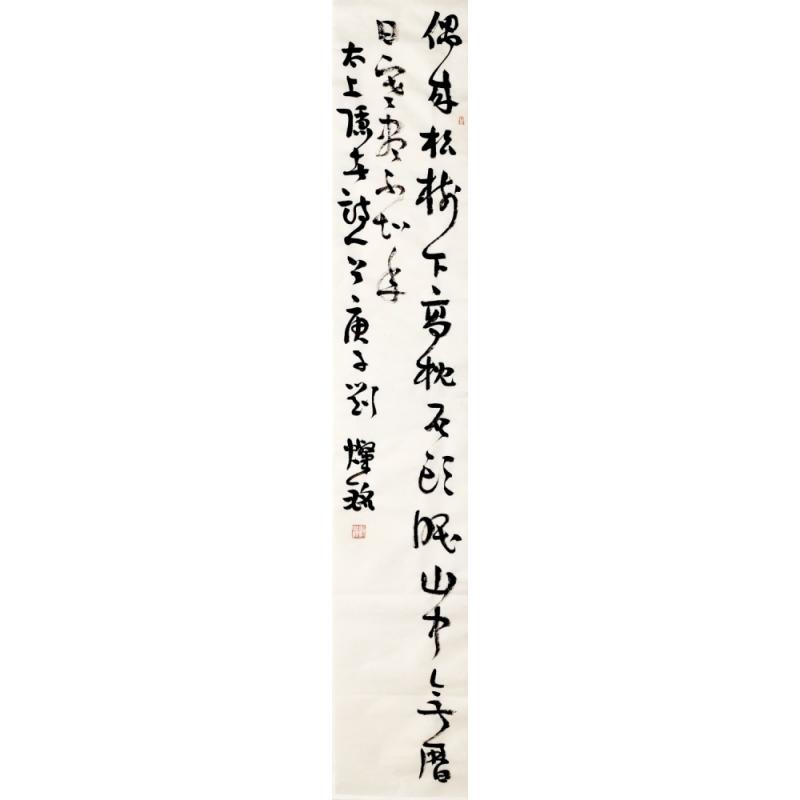 偶來松樹下高枕石頭眠山中無曆
日寒盡不知年
太上隱者詩一首庚子劉燦銘